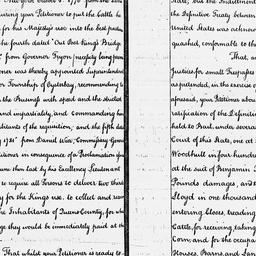 uiring your Petitioner to put the battle he
for his Majesty's use into the best pastu
he fourth dated "Out East Kings Bridge
" from Governor Tryon (majesty being from
oner was thereby appointed Superintendant
or Township of Oysterbay, recommending to
the Business with speed and the strictest
and impartiality, and commanding him
habitants of the requisition; and the fifth dat
y 1781" from Daniel Weir, Commissary Genera
titioner in consequence of a Proclamation of
ime then last by his Excellency Lieutenant
to require all Persons to deliver two thirds
y for the Kings use, to collect and recei
e Inhabitants of Queens County, for wh
ge they would be immediately paid at the
That whilst your Petitioner is ready to
State, but the Indictment
the Definitive Treaty between
United States was acknow
quashed, conformable to the
That, a
Justices for small Trespasses
as pretended, in the exercise of
aforesaid, your Petitioner about
ratification of the Definitive
held to Bail, under several
Court of this State, one at
Woodhull in four hundred
at the suit of Benjamin
Pounds damages, and
Lloyd in one thousand
entering Closes, treading
Cattle, for receiving, taking
Corn; and for the occupa
Houses, Barns, and Lan